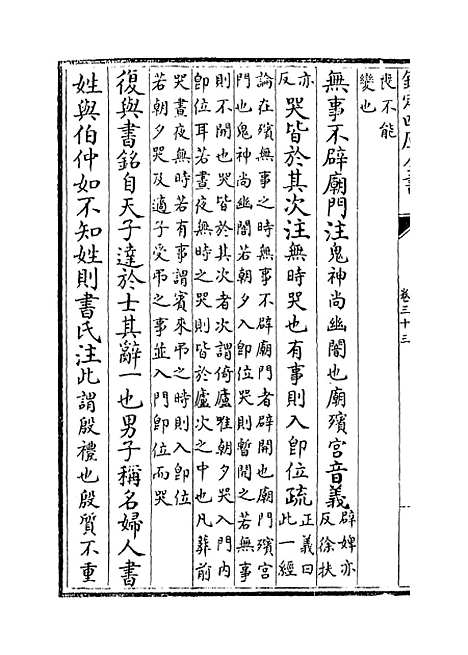 欽定四庫全書
卷三十三
喪不能
變也
無事不辟廟門注鬼神尚幽闇也廟殯宫音義辟婢亦
反徐扶
亦
反
哭皆於其次注無時哭也有事則入即位疏正義曰
此一經
論在殯無事之時無事不辟廟門者辟開也廟門殯宫
門也鬼神尚幽闇若朝夕入即位哭則暫開之若無事
則不開也哭皆於其次者次謂倚廬唯朝夕哭入門内
即位耳若晝夜無時之哭則皆於廬次之中也凡葬前
哭晝夜無時若有事謂賓來弔之時則入即位
若朝夕哭及適子受弔之事並入門即位而哭
復與書銘自天子達於士其辭一也男子稱名婦人書
姓與伯仲如不知姓則書氏注此謂殷禮也殷質不重